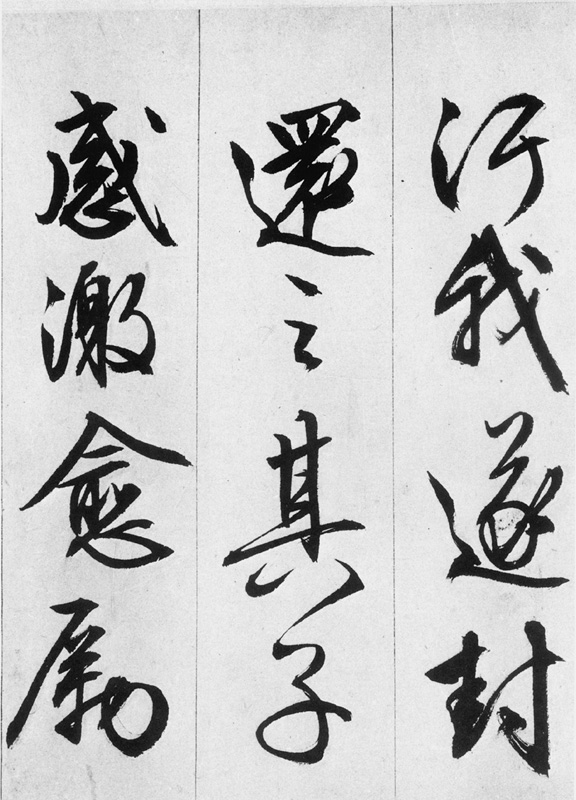 汙我遂封
還之其子
感激愈厲